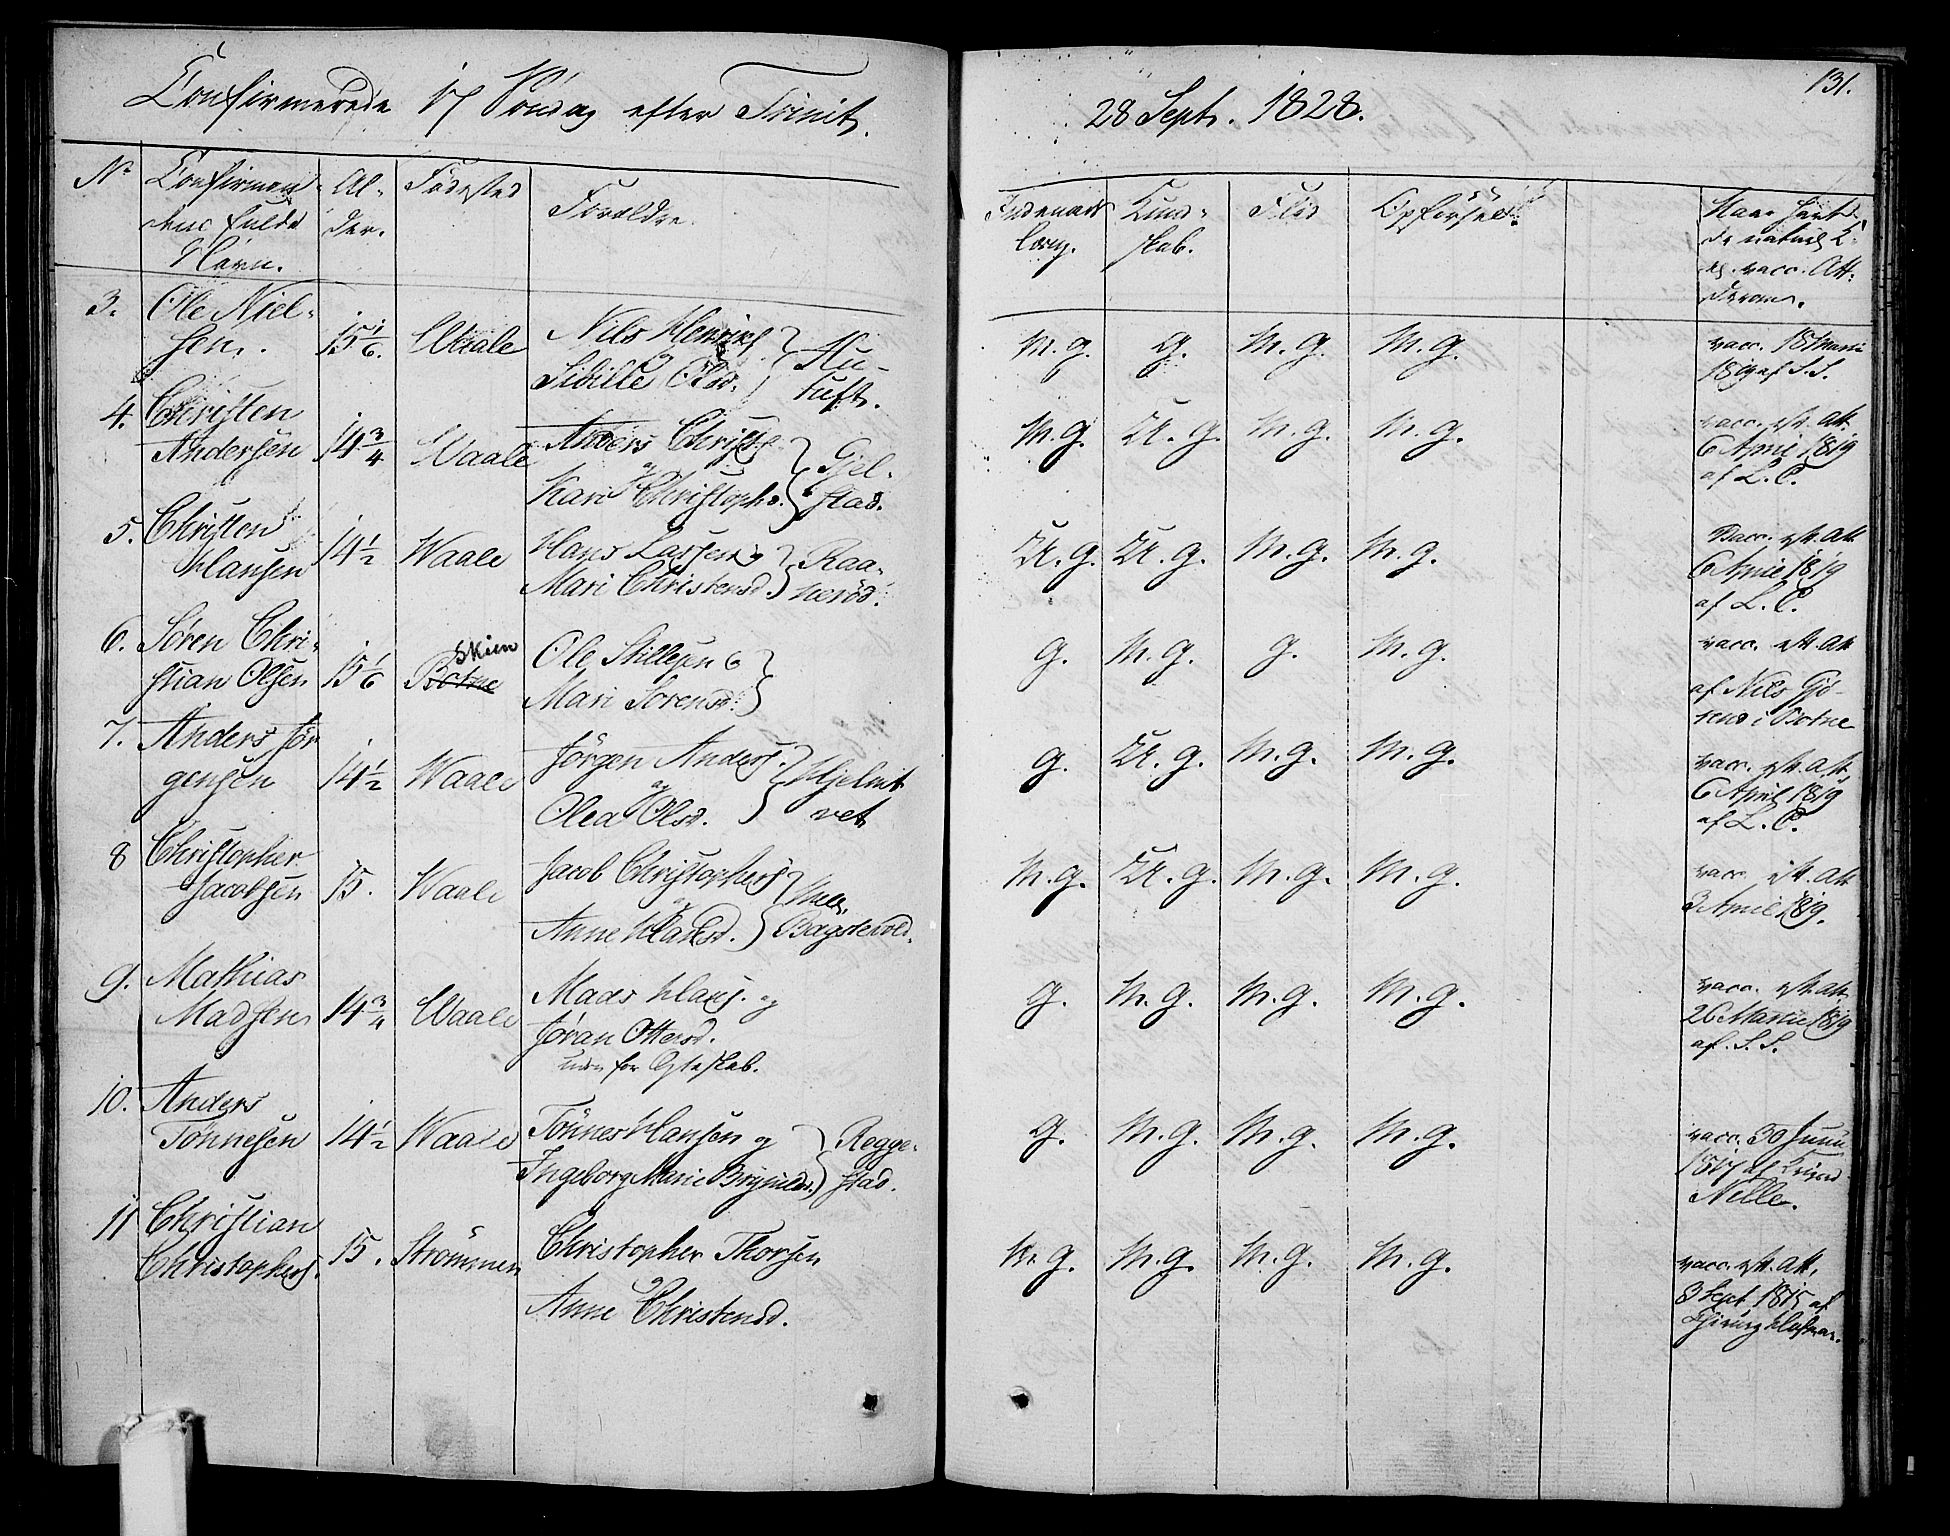 Confirmerede 17 Söndag efter Trinit.
28 Sept. 1828.
131.
No
Confirman-
dens fulde
Navn.
Al-
der.
Födested
Forældre.
Indenad-
læsn.
Kund-
skab.
Flid
Opförsel.
Naar havt
de naturl. K.
el. vacc. Att.
derom.
3.
Ole Niel-
sen.
15 1/6.
Waale
Nils Henrichs.
Sibille Olsd.
M. g.
g.
M. g.
M. g.
vacc. 18 Martii
1819 af S. S.
4.
Christen
Andersen
14 3/4
Waale
Anders Christs.
og
Kari Christophd.
Gjel-
stad.
M. g.
U. g.
M. g.
M. g.
vacc. eft. att.
6 April 1819
af L. C.
5.
Christen
Hansen
14 1/2
Waale
Hans Larssen og
Mari Christensd.
Raa-
neröd.
U. g.
U. g.
M. g.
M. g.
Vacc. eft. att.
6 April 1819
af L. C.
6.
Sören Chri-
stian Olsen
15 1/6
Skien
Botne
Ole Nillessen og
Mari Sörensd.
g.
M. g.
g.
M. g.
vacc. eft. att.
af Nils
i Botne
7.
Anders Jör
gensen
14 1/2
Waale
Jörgen Anders.
og
Olea Olsd.
Hjelmt
vet
g.
U. g.
M. g.
M. g.
vacc. eft. att.
6 April 1819
af L. C.
8
Christopher
Jacobsen
15.
Waale
Jacob Christophers.
og
Anne Hansd.
M. g.
U. g.
M. g.
M. g.
vacc. eft. att.
3 April 1819.
9.
Mathias
Madsen
14 3/4
Waale
Mads Hans. og
Jöran Ottersd.
uden for Egteskab.
g.
M. g.
M. g.
M. g.
vacc. eft. att.
26 Martii 1819
af. S. S.
10.
Anders
Tönnesen
14 1/2
Waale
Tönnes Hansen og
Ingeborg Marie Brynilds.
Regge-
stad.
g.
M. g.
M. g.
M. g.
vacc. 30 Junii
Nille.
11
Christian
Christophers.
15.
Strömmen
Christopher Thorsen
og
Anne Christensd.
M. g.
M. g.
M. g.
M. g.
vacc. eft. att.
3 Sept. 1815 af
Chirurg